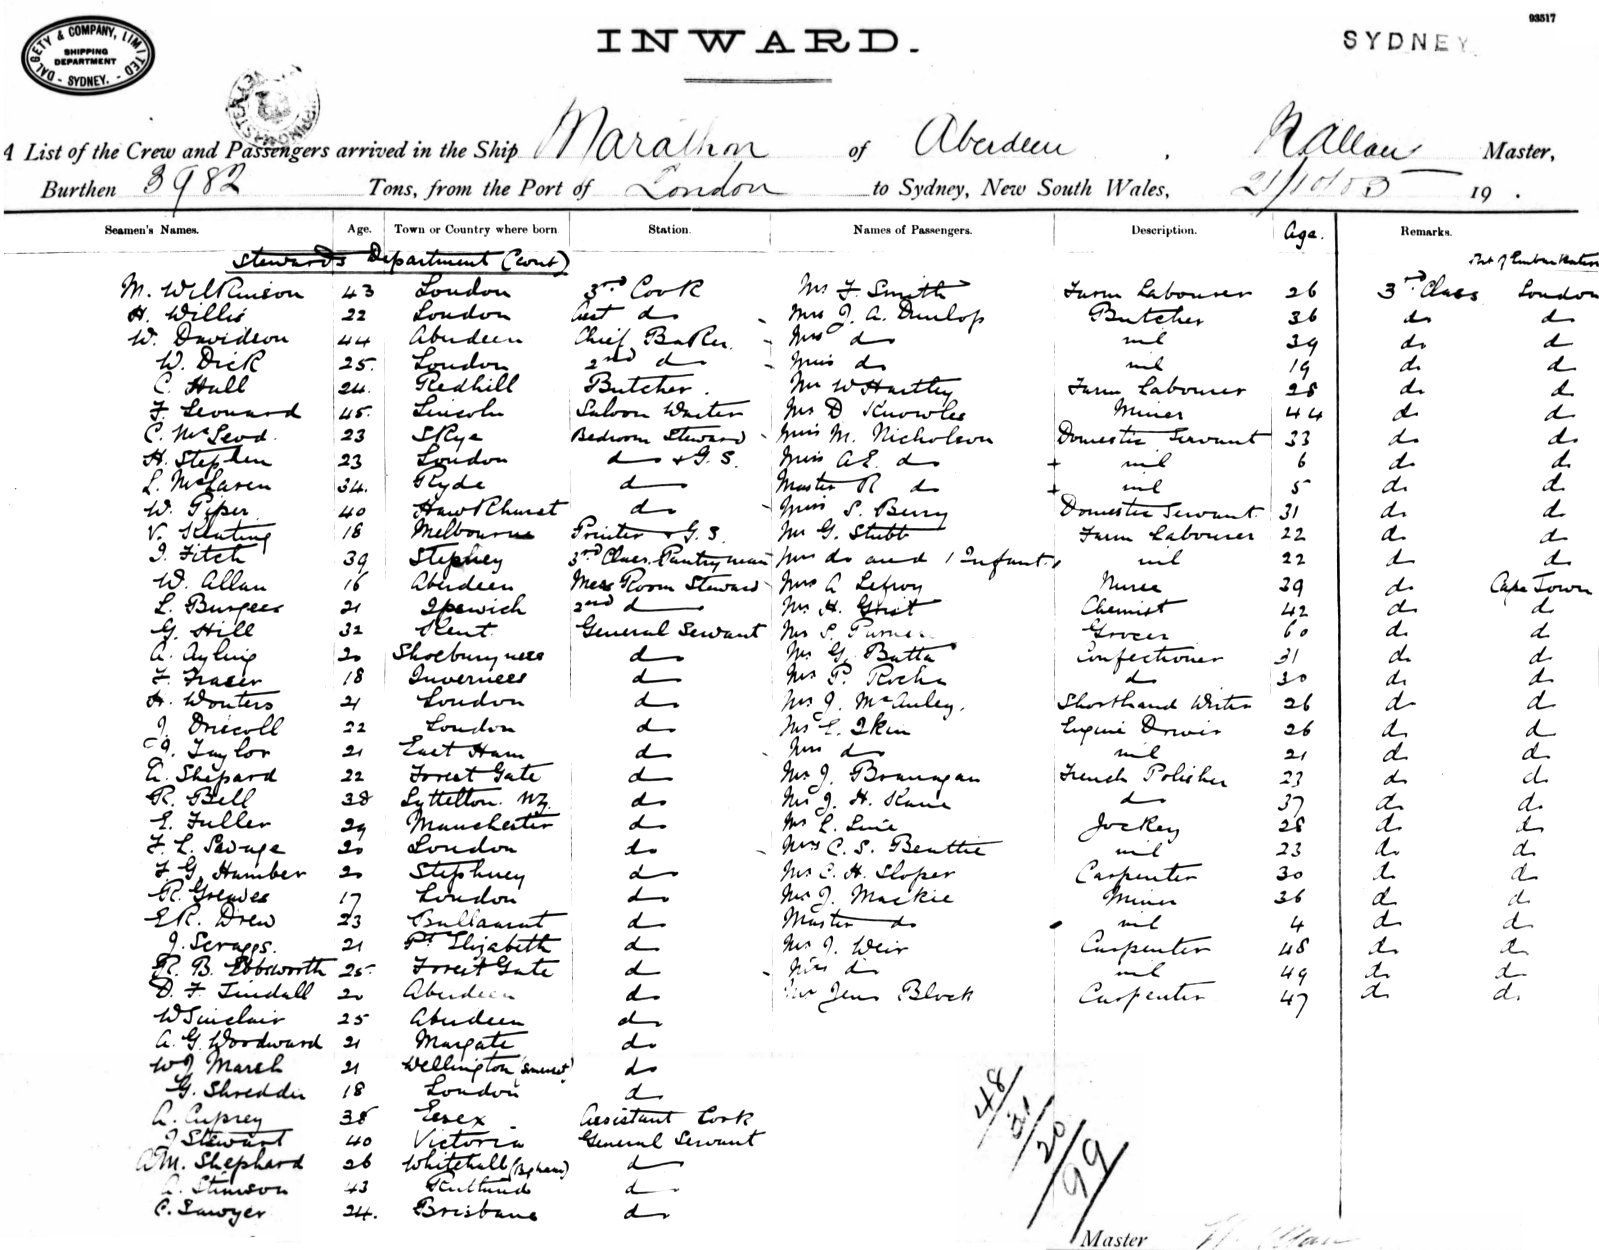 DALGETY & COMPANY, LIMITED
SHIPPING
DEPARTMENT
- SYDNEY. -
INWARD.
SYDNEY
93517
A List of the Crew and Passengers arrived in the Ship Marathon of Aberdeen, N Allan Master,
Burthen 3982 Tons, from the Port of London to Sydney, New South Wales, 21/10/03 19 .
Seamen's Names. Age. Town or Country where born Station. Names of Passengers. Description. Age. Remarks.
Stewards Department (cont) Port of Embarkation
M. Wilkinson 43 London 3rd Cook Mr F. Smith Farm Labourer 26 3rd Class London
H. Willis 22 London Asst do Mr J. A. Dunlop Butcher 36 do do
W. Davidson 44 Aberdeen Chief Baker. Mrs do nil 39 do do
W. Dick 25. London 2nd do Miss do nil 19 do do
C. Hall 24. Redhill Butcher. Mr W Hartley Farm Labourer 28 do do
F. Leonard 45. Lincoln Saloon Waiter Mr D Knowles Miner 44 do do
C. McLeod. 23 Skye Bedroom Steward Miss M. Nicholson Domestic Servant 33 do do
H. Stephen 23 London do & G. S. Miss A.E. do + nil 6 do do
L. McLaren 34. Ryde do Master R do + nil 5 do do
W. Piper 40 Hawkhurst do Miss S. Berry Domestic Servant 31 do do
V. Keating 18 Melbourne Printer & G. S. Mr G. Stubb Farm Labourer 22 do do
J. Fitch 39 Stepney 3rd Class Pantryman Mrs do and 1 Infant. nil 22 do do
W. Allan 16 Aberdeen Mess Room Steward Mrs A Lefroy Nurse 39 do Cape Town
L. Burgess 21 Ipswich 2nd do Mr H. Chemist 42 do do
G. Hill 32 Kent General Servant Mr S. Grocer 60 do do
A. Ayling 20 Shoeburyness do Mr G. Batta Confectioner 31 do do
F. Fraser 18 Inverness do Mr P. Roche do 30 do do
H. Wouters 21 London do Mr J. McAuley. Shorthand Writer 26 do do
J. Driscoll 22 London do Mr E. Ikin Engine Driver 26 do do
J. Taylor 21 East Ham do Mrs do nil 21 do do
A. Shepard 22 Forest Gate do Mr J. Branagan French Polisher 23 do do
R. Bell 38 Lyttelton. NZ. do Mr J. H. Kane do 37 do do
E. Fuller 29 Manchester do Mr L. Jockey 28 do do
F. L. Savage 20 London do Mrs C. S. Beattie nil 23 do do
F. G. Humber 20 Stephney do Mr C. H. Sloper Carpenter 30 do do
R. Greaves 17 London do Mr J. Mackie Miner 36 do do
E R. Drew 23 Ballaarat do Master do nil 4 do do
J. Scraggs. 21 Pt Elizabeth do Mr J. Weir Carpenter 48 do do
R. B. Ebbsworth 25 Forest Gate do Mrs do nil 49 do do
D. F. Tindall 20 Aberdeen do Mr Jens Block Carpenter 47 do do
W Sinclair 25 Aberdeen do
A. G. Woodward 21 Margate do
W J March 21 Wellington (Somerset) do
G. Shredder 18 London do
A. Cuprey 38 Essex. Assistant Cook
J Stewart 40 Victoria General Servant
A M. Shephard 26 Whitehall do
A. Stimson 43 Rutland do
C. Sawyer 24. Brisbane do
48/31/20/99
Master